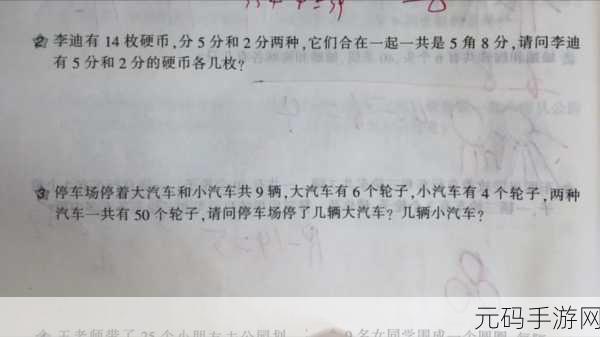 2 李迪有 14 枚硬币,分 5 分和 2 分两种,它们合在一起一共是 5 角 8 分,请问李迪
有 5 分和 2 分的硬币各几枚?
3 停车场停着大汽车和小汽车共 9 辆,大汽车有 6 个轮子,小汽车有 4 个轮子,两种
汽车一共有 50 个轮子,请问停车场停了几辆大汽车? 几辆小汽车?
王老师带了 25 个小朋友去公园划
9 名女同学围成一个圆圈
元码手游网